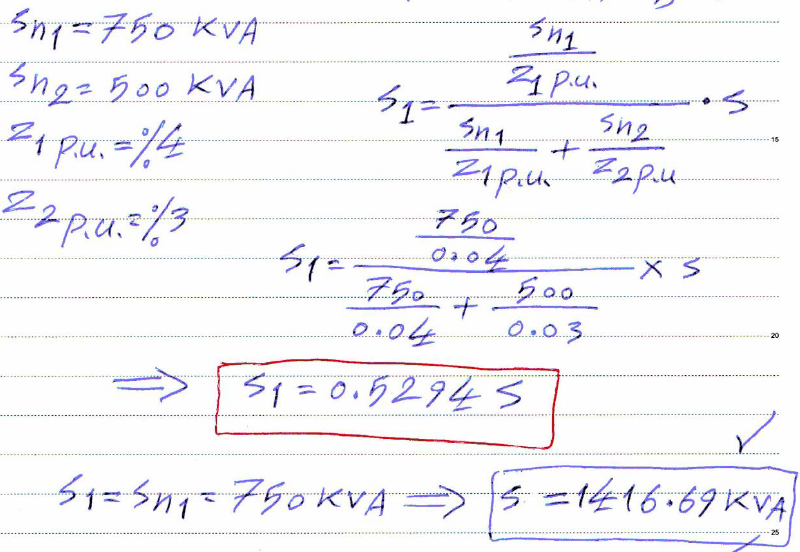 Sn1 = 750 KVA
Sn2 = 500 KVA
Z1 p.u. = %4
Z2 p.u. = %3
S1 = (Sn1 / Z1 p.u.) / (Sn1 / Z1 p.u. + Sn2 / Z2 p.u) · S
15
S1 = (750 / 0.04) / (750 / 0.04 + 500 / 0.03) × S
20
⇒ S1 = 0.5294 S
✓
S1 = Sn1 = 750 KVA ⇒ S = 1416.69 KVA
25